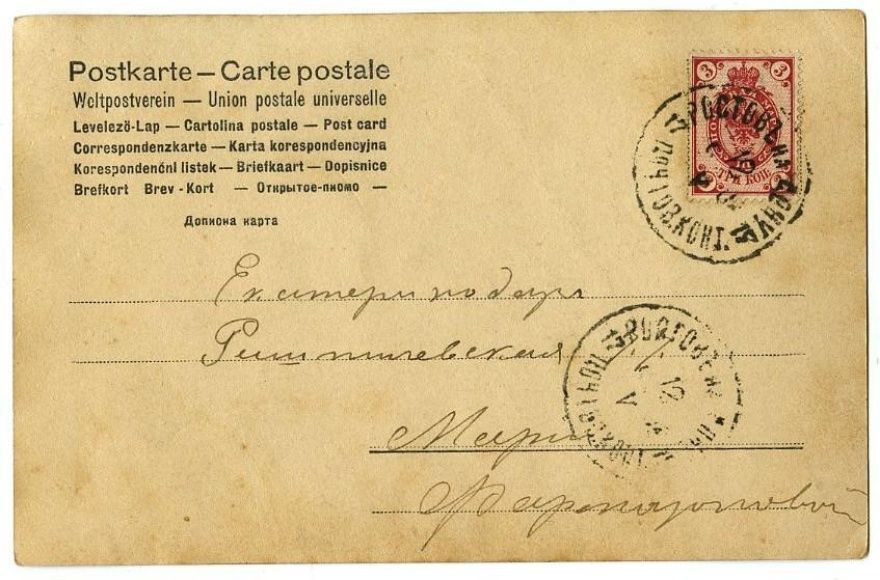 Postkarte — Carte postale
Weltpostverein — Union postale universelle
Levelező-Lap — Cartolina postale — Post card
Correspondenzkarte — Karta korespondencyjna
Korespondenční listek — Briefkaart — Dopisnice
Brefkort Brev-Kort — Открытое-писмо —
Дописна карта
3 3
ТРИ КОП.
РОСТОВЪ НА ДОНУ
ПОЧТОВ. КОНТ.
Екатеринодаръ
Ришельевская
РОСТОВЪ НА
ПОЧТОВ. КОНТ.
Марiи